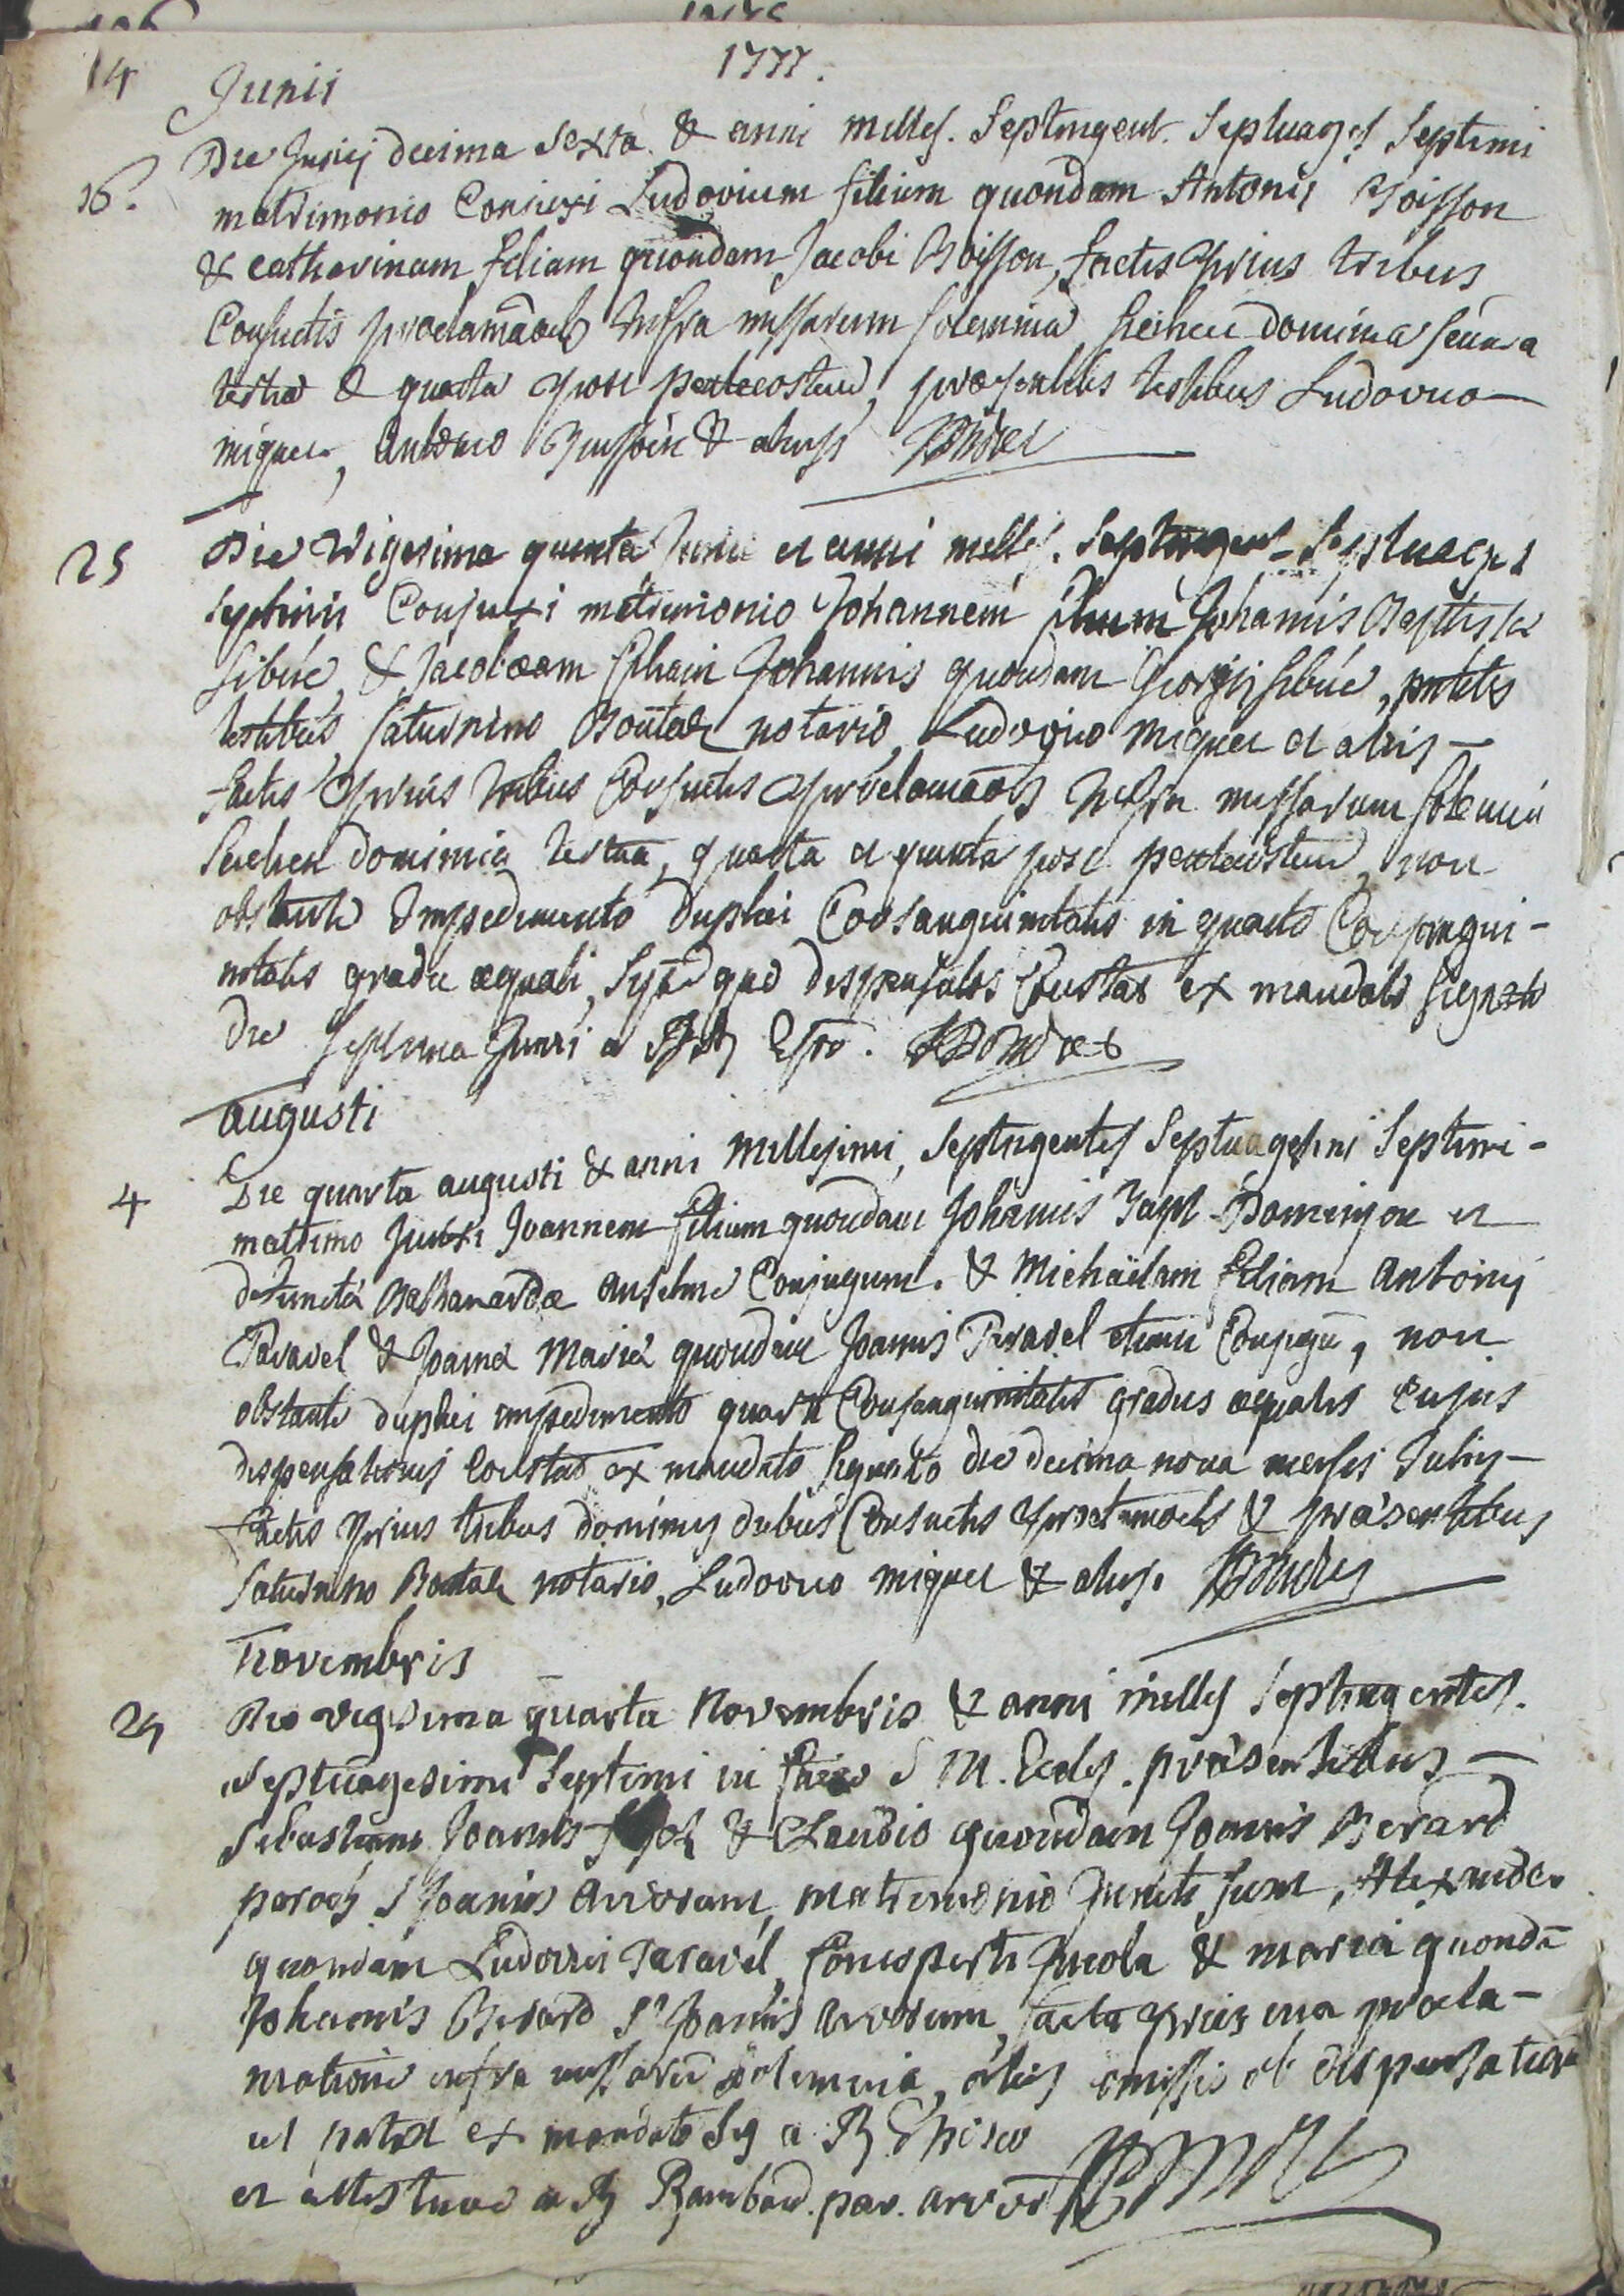 1777.
14 Junii
Die Junij decima sexta & anni milles. Septingent. Septuages. Septimi
16. matrimonio Coniuxi Ludovicum filium quondam Antonij Boisson
& catharinam filiam quondam Jacobi Boisson, factis prius tribus
Consuetis proclamãoib Infra missarum solemnia scilicet dominica secunda
tertia & quarta post pentecosten, præsentibus testibus Ludovico
miquel, Antonio & aliis
25 Die Vigesima quinta Junii et anni milles. Septingent. Septuages
septimi Conjuxi matrimonio Johannem filium Johannis Baptistæ
sibué, & Jacobæam filiam Johannis quondam Georgij sibué, pntibs
testibus Saturnino notario, Ludovico Miquel et aliis
factis prius tribus Consuetis proclamãoib Infra missarum solemnia
scilicet dominica tertia, quarta et quinta post pentecosten, non
obstante Impedimento duplici Consanguinitatis in quarto Consangui-
nitatis gradu æquali, dispensatos Constat ex mandato signato
die septima Junii a Epõ.
augusti
4 Die quarta augusti & anni Millesimi, Septingentes Septuagesimi Septimi
matrimo Junxi Joannem filium quondam Johannis Bapt Domenjon et
defuncta anselme Conjugum. & Michaëlam filiam Antonij
Taravel & Joanna Maria quondam Joannis Taravel etiam Conjugũ, non
obstante duplici impedimento quarti Consanguinitatis gradus æqualis cujus
dispensationis Constat ex mandato signato die decima nona mensis Julij
factis prius tribus dominicis diebus Consuetis & præsentibus
Saturnino notario, Ludovico miquel & aliis.
Novembris
24 Die vigesima quarta Novembris & anni milles septingentes.
Septuagesimi Septimi in facie S M. Eccles. præsentibus
Sebastiano Joannis & Claudio quondam Joannis Berard
paroch S Joannis Arvorum, matrimonio Juncti sunt, Alexander
quondam Ludovici Taravel, Incola & maria quondã
Johannis Berard Sti Joannis Arvorum, facta prius una procla-
matione infra missarũ solemnia, aliis omissis ob dispensationẽ
ut patet ex mandato sig a R
et attestatione a R Rambaud. par. arvor